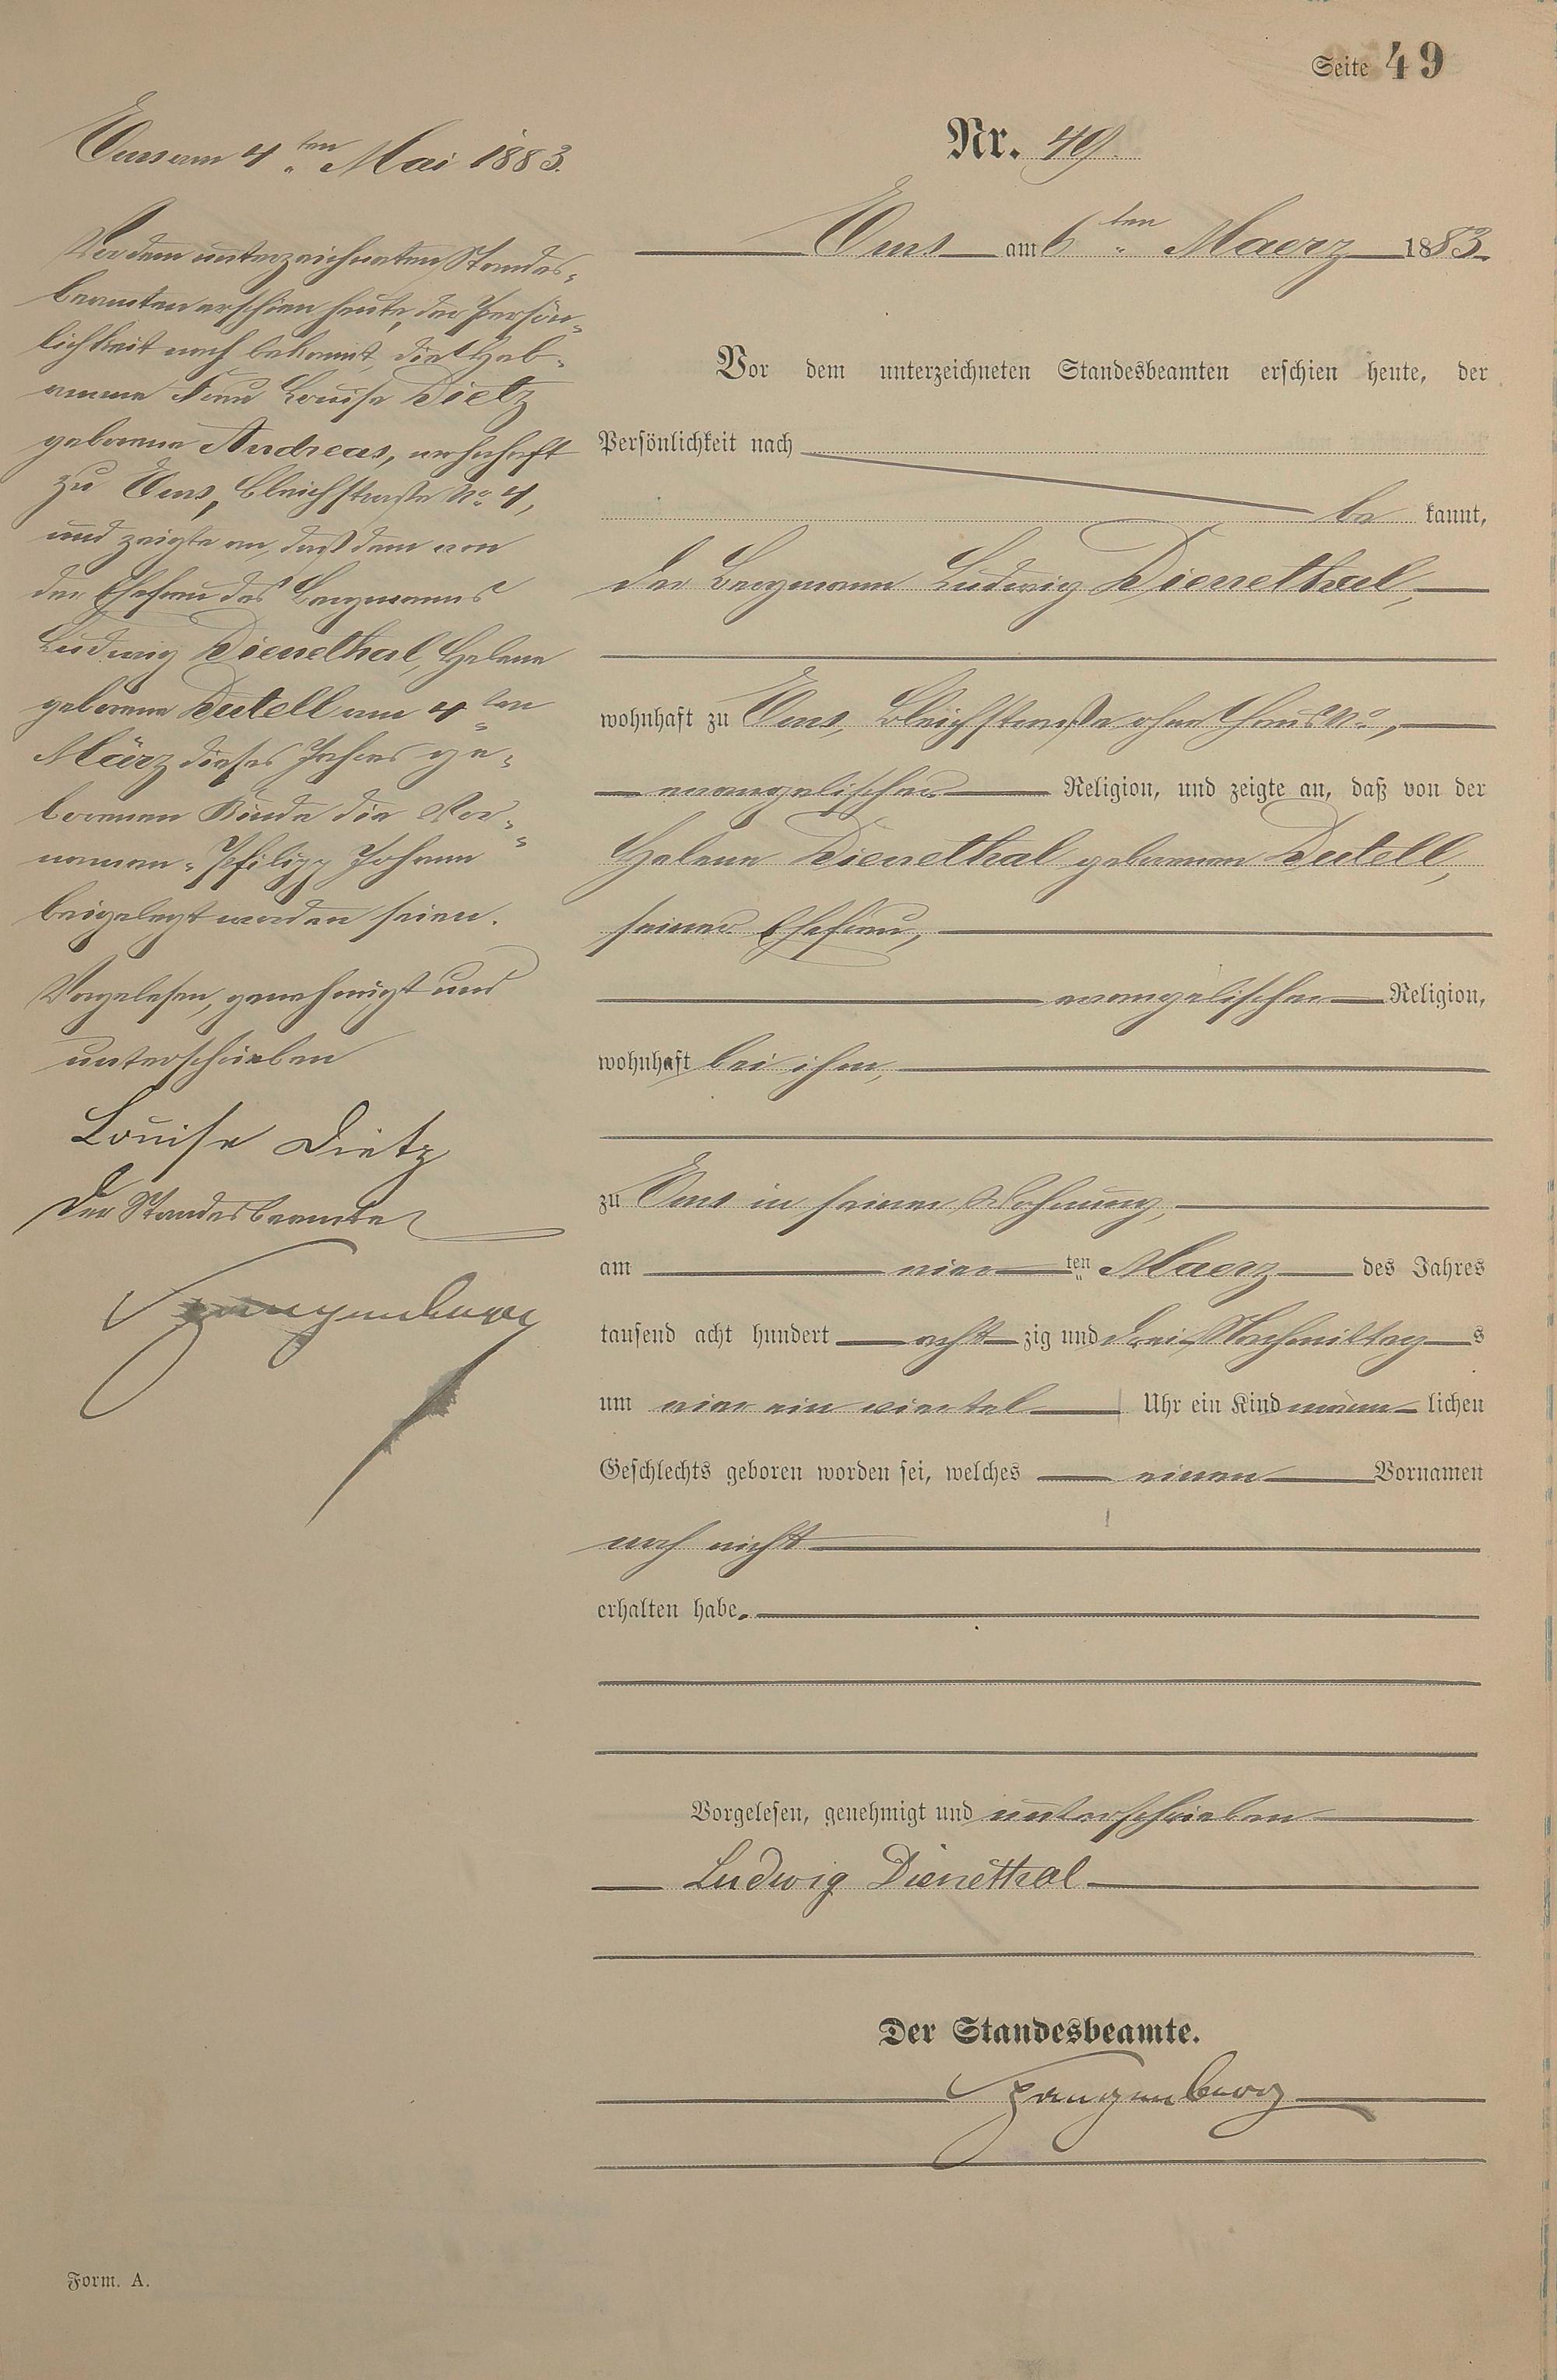 Seite 49
Nr. 49.
Ems am 6ten Maerz 1883.
Vor dem unterzeichneten Standesbeamten erschien heute, der
Persönlichkeit nach
be kannt,
der Bergmann Ludwig Dienethal,
wohnhaft zu Ems, Bleichstraße ohne Haus No.,
evangelischer Religion, und zeigte an, daß von der
Helene Dienethal geborenen Dutell,
seiner Ehefrau,
evangelischer Religion,
wohnhaft bei ihm,
zu Ems in seiner Wohnung,
am vier ten Maerz des Jahres
tausend acht hundert acht zig und drei Nachmittag s
um vier ein viertel Uhr ein Kind männ lichen
Geschlechts geboren worden sei, welches einen Vornamen
noch nicht
erhalten habe.
Vorgelesen, genehmigt und unterschrieben
Ludwig Dienethal
Der Standesbeamte.
Spangenberg
Ems am 4ten Mai 1883.
Vor dem unterzeichneten Standes-
beamten erschien heute, der Persön-
lichkeit nach bekannt, die Heb-
amme Frau Louise Dietz
geborene Andreas, wohnhaft
zu Ems, Bleichstraße No. 4,
und zeigte an, daß dem von
der Ehefrau des Bergmanns
Ludwig Dienethal, Helene
geborene Dutell am 4ten
März dieses Jahres ge-
borenen Kinde die Vor-
namen: Philipp Johann
beigelegt worden seien.
Vorgelesen, genehmigt und
unterschrieben
Louise Dietz
Der Standesbeamte
Spangenberg
Form. A.